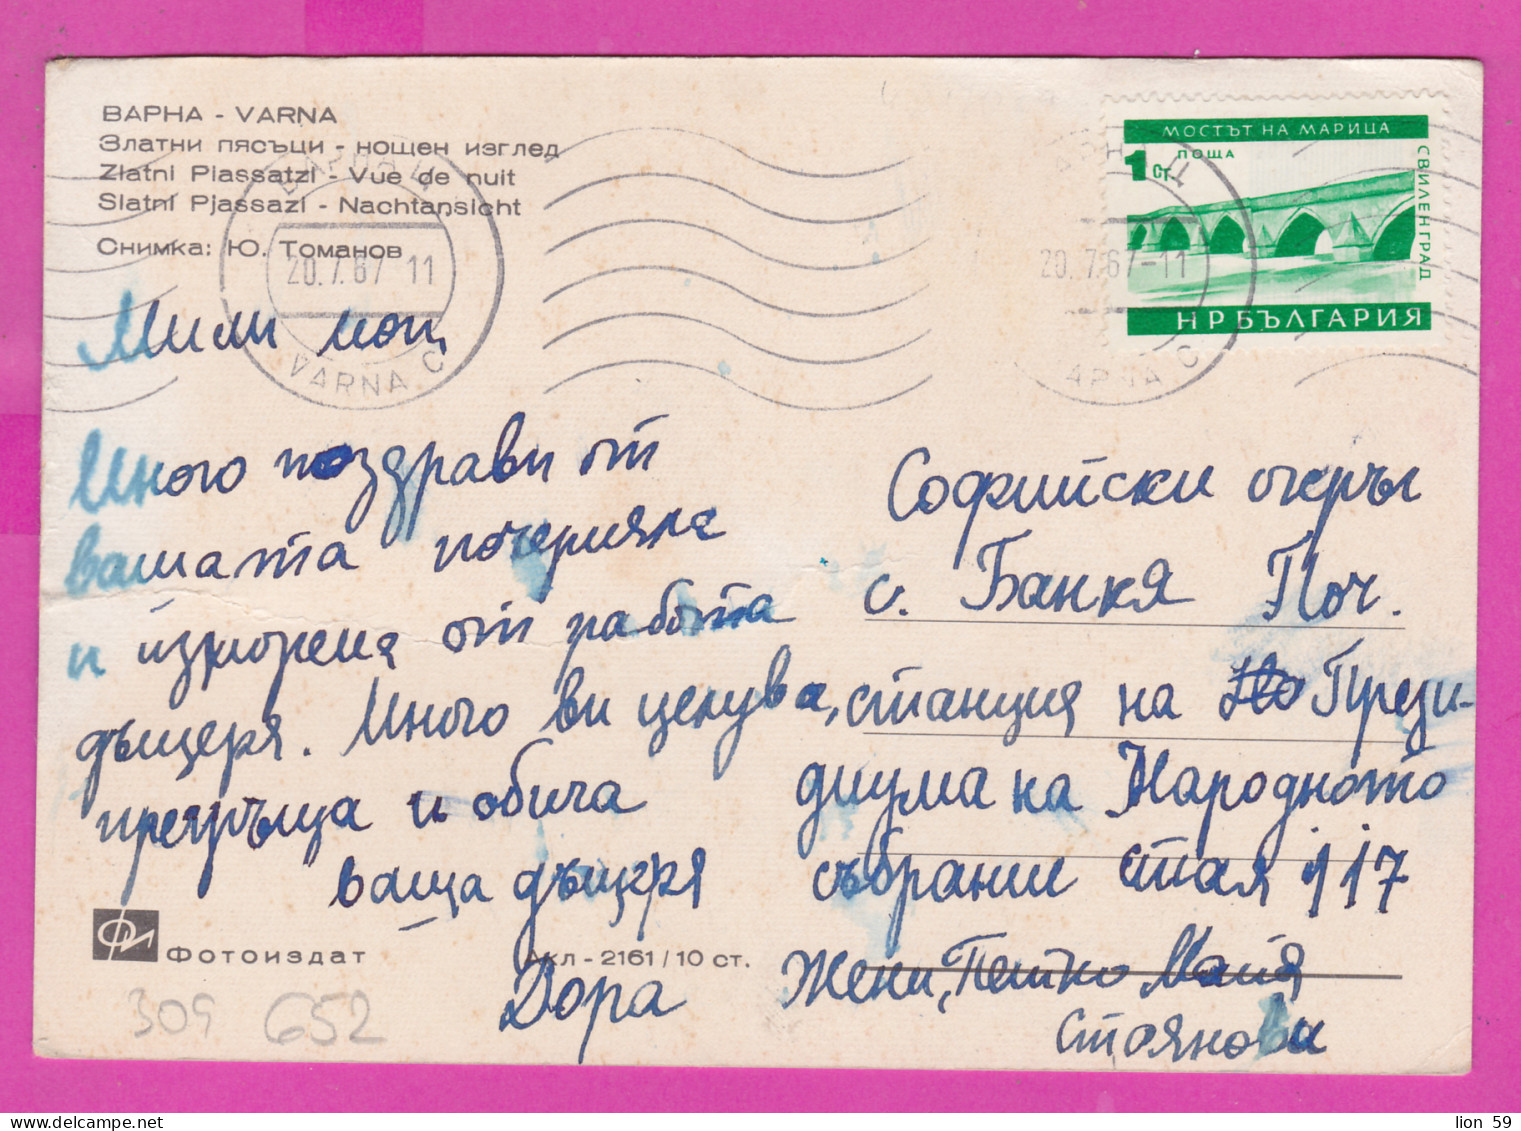 ВАРНА - VARNA
Златни пясъци - нощен изглед
Zlatni Piassatzi - Vue de nuit
Slatni Pjassazi - Nachtansicht
Снимка: Ю. Томанов
20.7.67-11
VARNA C
20.7.67-11
МОСТЪТ НА МАРИЦА
1 СТ ПОЩА
СВИЛЕНГРАД
НРБЪЛГАРИЯ
Мили мои,
Много поздрави от
вашата почерняла
и изморена от работа
дъщеря. Много ви целува,
прегръща и обича
ваша дъщеря
Дора
Софийски окръг
с. Банкя Поч.
станция на Прези-
диума на Народното
събрание стая 117
Жени, Петко Майя
Стоянови
Фотоиздат
Акл - 2161 / 10 ст.
309 652
lion 59